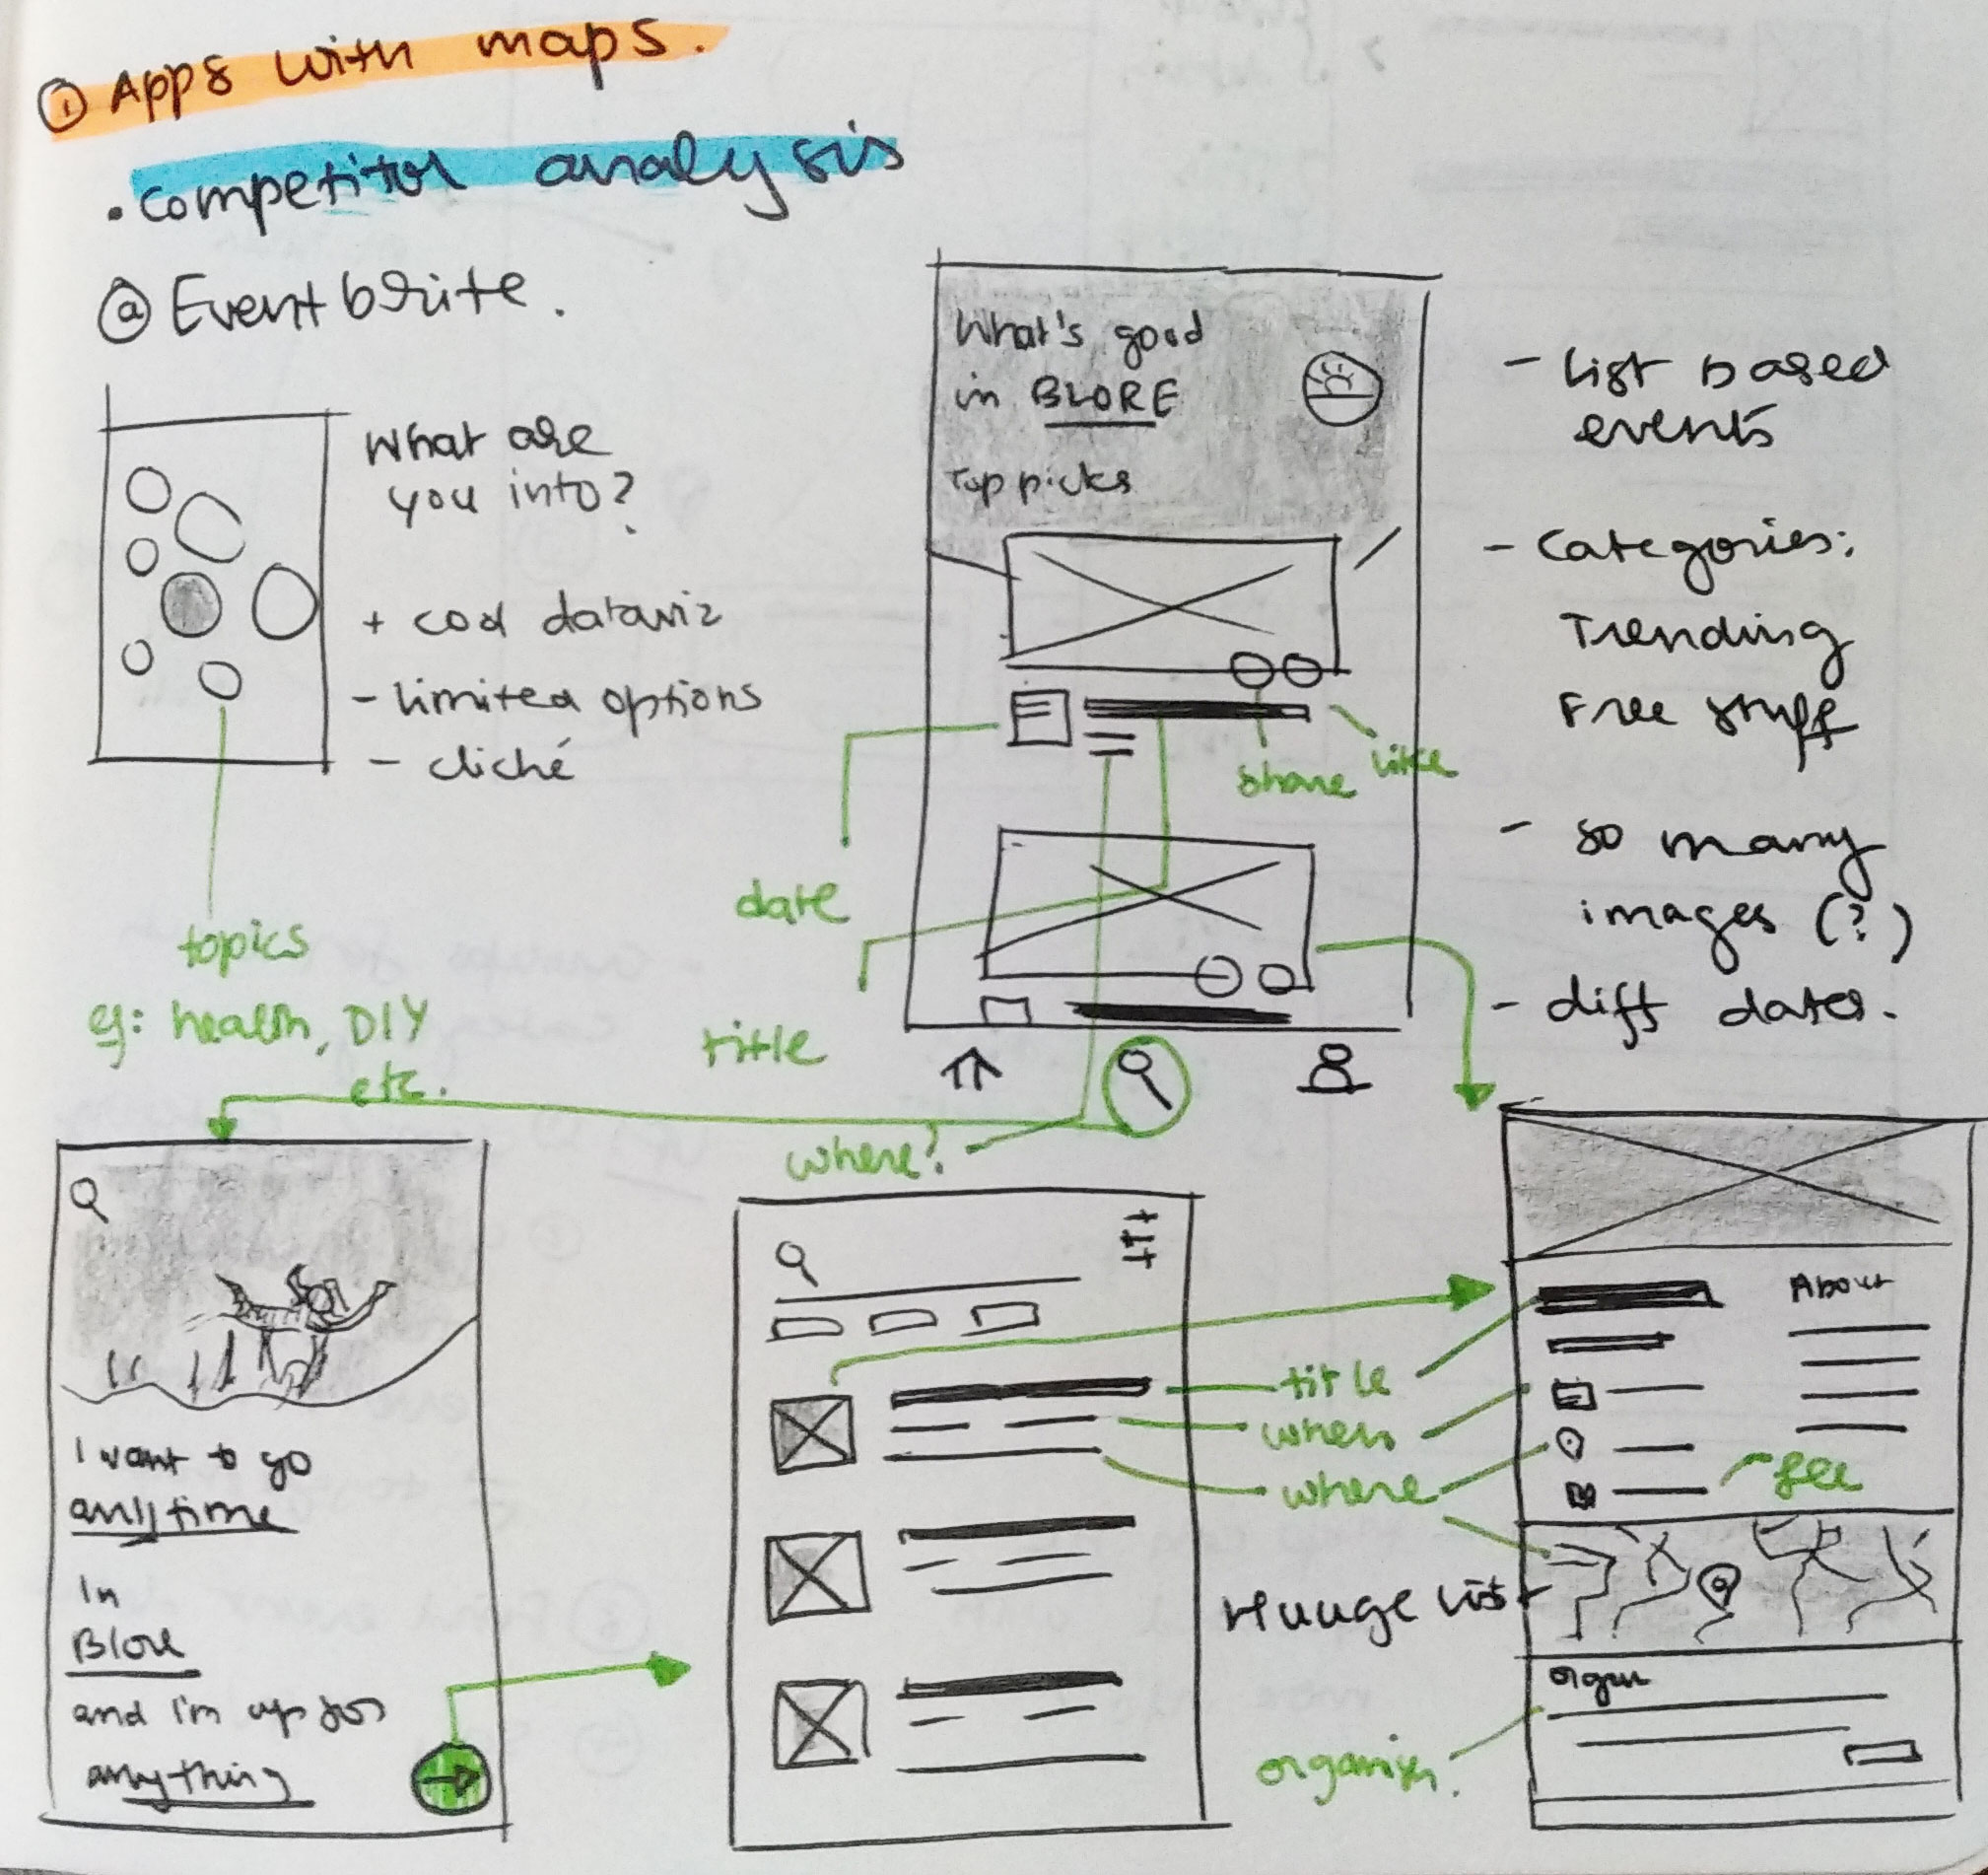 ① Apps with maps.
• competitor analysis
ⓐ Eventbrite.
What are
you into?
+ cool dataviz
- limited options
- cliché
topics
eg: health, DIY
etc.
What's good
in BLORE
Top picks
share
like
date
title
where?
- List based
events
- Categories:
Trending
Free stuff
- so many
images (?)
- diff dates.
I want to go
anytime
In
Blore
and I'm up for
anything
title
when
where
Huuuge list
organiser.
About
fee
organ